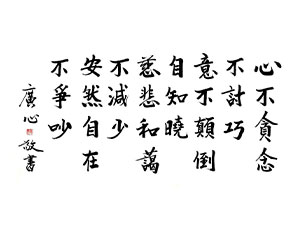 心不貪念
不討巧
意不顛倒
自知曉
慈悲和藹
不減少
安然自在
不爭吵
廣心敬書